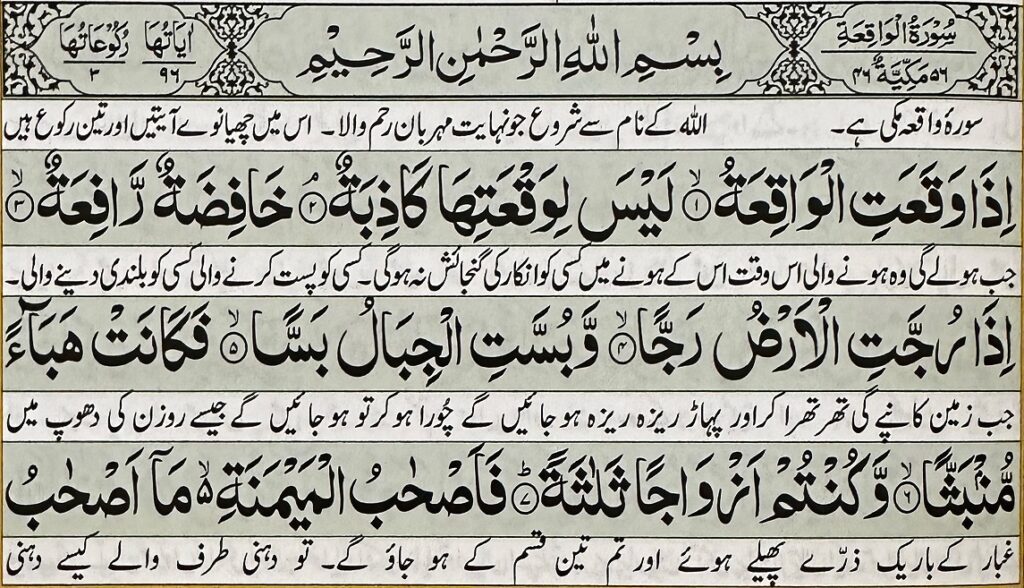 سُوْرَةُ الْوَاقِعَةِ
۵۶ مَكِّيَّةٌ ۴۶
بِسْمِ اللهِ الرَّحْمٰنِ الرَّحِيْمِ
اٰيَاتُهَا ۹۶
رُكُوْعَاتُهَا ۳
سورۂ واقعہ مکی ہے۔ اللہ کے نام سے شروع جو نہایت مہربان رحم والا۔ اس میں چھیانوے آیتیں اور تین رکوع ہیں
اِذَا وَقَعَتِ الْوَاقِعَةُ ۙ﴿۱﴾ لَيْسَ لِوَقْعَتِهَا كَاذِبَةٌ ۘ﴿۲﴾ خَافِضَةٌ رَّافِعَةٌ ۙ﴿۳﴾
جب ہولے گی وہ ہونے والی اس وقت اس کے ہونے میں کسی کو انکار کی گنجائش نہ ہوگی۔ کسی کو پست کرنے والی کسی کو بلندی دینے والی۔
اِذَا رُجَّتِ الْاَرْضُ رَجًّا ۙ﴿۴﴾ وَّ بُسَّتِ الْجِبَالُ بَسًّا ۙ﴿۵﴾ فَكَانَتْ هَبَآءً
جب زمین کانپے گی تھرتھرا کر اور پہاڑ ریزہ ریزہ ہو جائیں گے چُورا ہو کر تو ہو جائیں گے جیسے روزن کی دھوپ میں
مُّنْۢبَثًّا ۙ﴿۶﴾ وَّ كُنْتُمْ اَزْوَاجًا ثَلٰثَةً ؕ﴿۷﴾ فَاَصْحٰبُ الْمَيْمَنَةِ ۙ۵ مَاۤ اَصْحٰبُ
غبار کے باریک ذرّے پھیلے ہوئے اور تم تین قسم کے ہو جاؤ گے۔ تو دہنی طرف والے کیسے دہنی